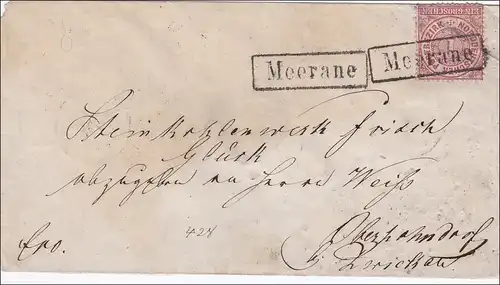 EIN GROSCHEN
Meerane Meerane
Steinkohlenwerk Frisch
Glück
abzugeben an Herrn Weiß
Oberhohndorf
b. Zwickau
fro.